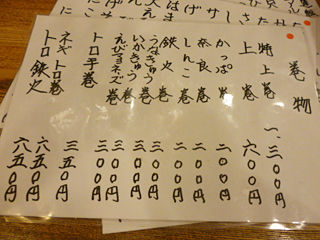 巻物
特上巻 一、三〇〇円
上巻 六〇〇円
かっぱ巻 二〇〇円
奈良巻 二〇〇円
しんこ巻 二〇〇円
鉄火巻 三〇〇円
うなきゅう巻 三〇〇円
いかきゅう巻 三〇〇円
えびマヨネズ巻 三〇〇円
トロ手巻 三五〇円
ネギトロ巻 六五〇円
トロ鉄火 六五〇円